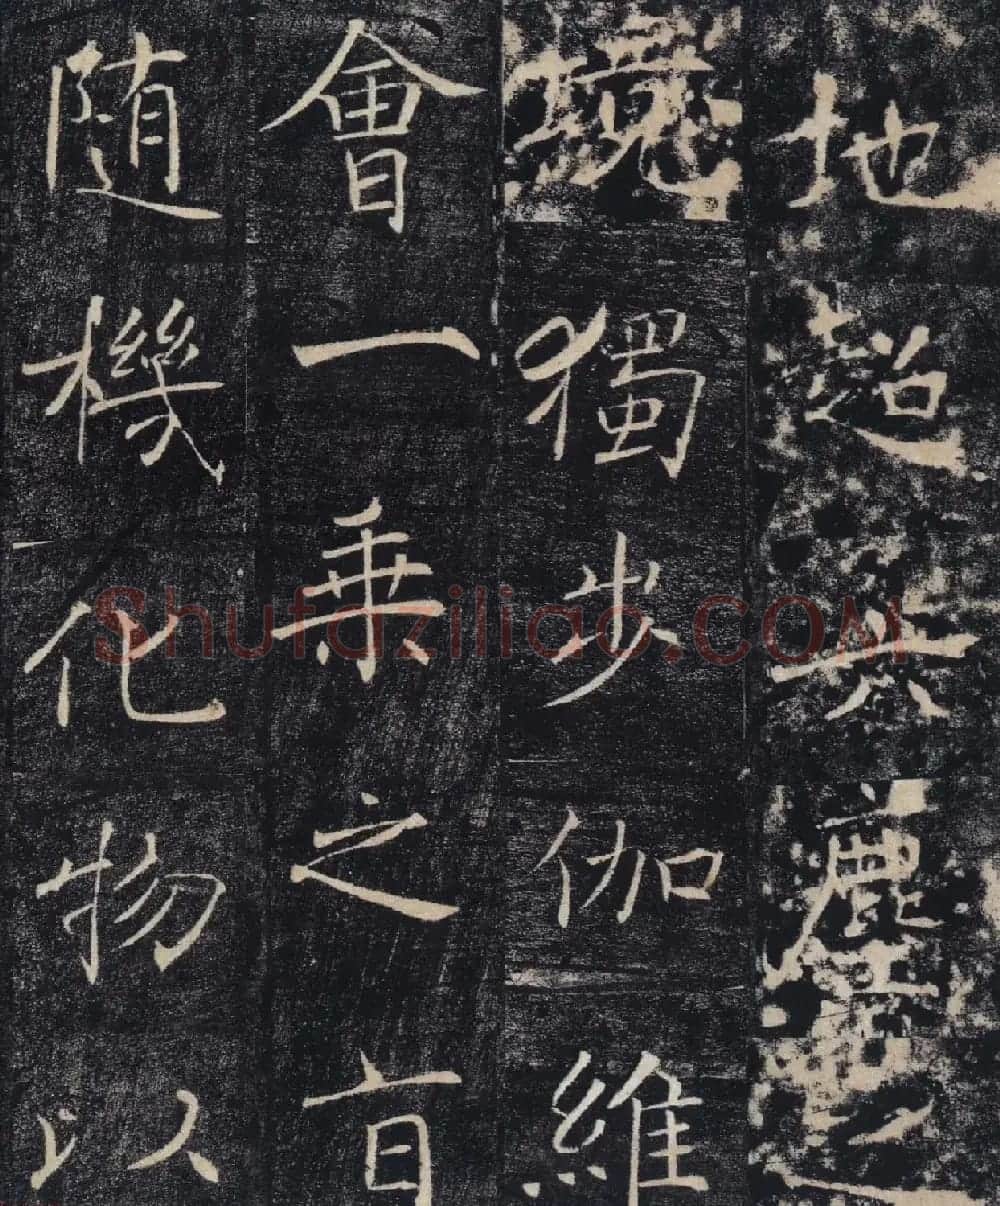 地超六塵之
境獨步伽維
會一乘之旨
随機化物以
Shufaziliao.COM